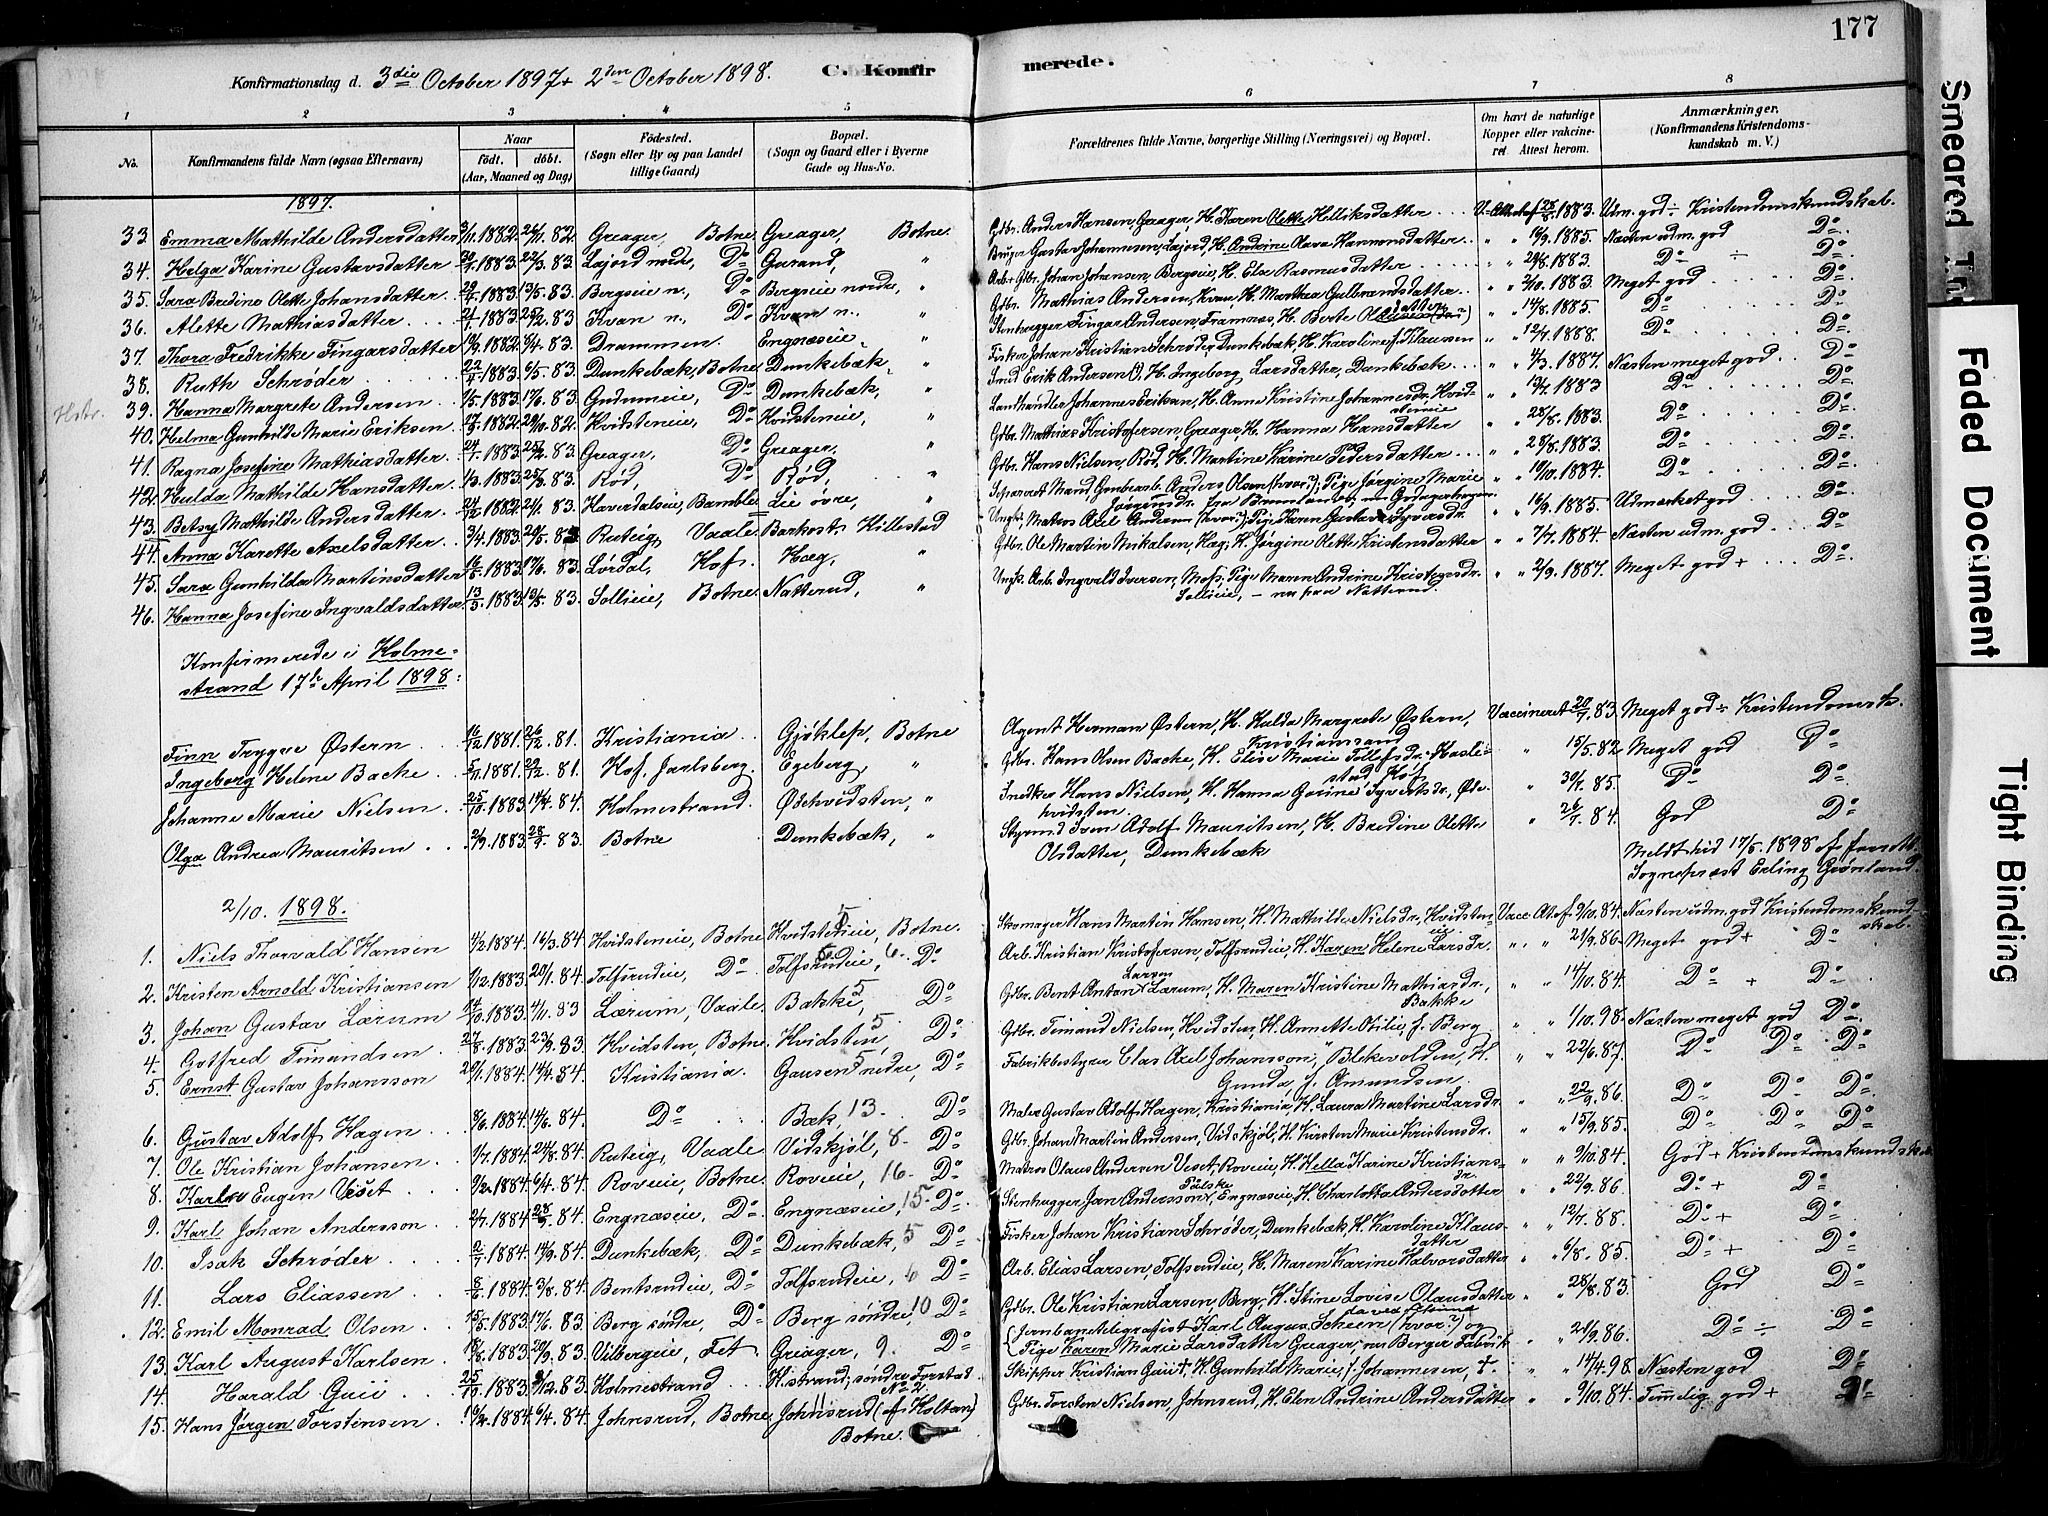 177
Konfirmationsdag d. 3die October 1897 + 2den October 1898. C. Konfirmerede.
1 2 3 4 5 6 7 8
No. Konfirmandens fulde Navn (ogsaa Efternavn) Naar født, døbt. (Aar, Maaned og Dag) Fødested. (Sogn eller By og paa Landet tillige Gaard) Bopæl. (Sogn og Gaard eller i Byerne Gade og Hus-No.) Forældrenes fulde Navne, borgerlige Stilling (Næringsvei) og Bopæl. Om havt de naturlige Kopper eller vakcineret. Attest herom. Anmærkninger. (Konfirmandens Kristendomskundskab m. V.)
1897.
33 Emma Mathilde Andersdatter 1882 82. Greager, Botne Greager, Botne Gdbr. Anders Hansen, Greager, H. Karen Olette Helliksdatter 1883. Udm. god ÷ Kristendomskundskab.
34. Helga Karine Gustavsdatter 1883 22/3. 83. Lajord nedre, Do Gurand, " Bruger Gustav Johannesen, Lajord, H. Andrine Olava Hannonsdatter 16/9. 1885. Næsten udm. god Do
35. Sara Bredine Olette Johansdatter 1883 83. Bergseie n., Do Bergseie nordre, " Arb. Gdbr. Johan Johansen, Bergseie, H. Else Rasmusdatter 29/8. 1883. Do ÷ Do
36. Alette Mathiasdatter 1883 83. Kvan n., Do Kvan n., " Gdbr. Mathias Andersen, Kvan, H. Marthea Gulbrandsdatter 2/10. 1883. Meget god Do
37. Thora Fredrikke Fingarsdatter 1882 83. Drammen. Engnæseie " Stenhugger Fingar Andersen, Framnæs, H. Berte 14/8. 1885. Do Do
38. Ruth Schrøder 1883 6/5. 83. Dunkebæk, Botne Dunkebæk. " Fisker Johan Kristian Schrøder, Dunkebæk H. Karoline f. Klausen 12/7. 1888. Do Do
Hstr. 39. Hanna Margrete Andersen 1883 17/6. 83. Do Dunkebæk, Smed Erik Andersen H. Ingeborg Larsdatter, Dunkebæk 1/3. 1887. Næsten meget god Do
40. Helma Gunhilde Marie Eriksen 1882 29/10. 82. Hvidsteneie, Do Hvidsteneie, " Landhandler Johannes Eriksen, H. Anne Kristine Johannesdr, Hvidsteneie 1883 Do Do
41. Ragna Josefine Mathiasdatter 1883 83 Greager, Do Greager, " Gdbr. Mathias Kristofersen, Greager, H. Hanna Hansdatter 28/8. 1883. Do Do
42. Hulda Mathilde Hansdatter 1883 83. Rød, Do Rød, " Gdbr. Hans Nielsen, Rød, H. Martine Karine Pedersdatter 28/8. 1883. Do Do
43. Betsy Mathilde Andersdatter 1882 83. Haverdalseie, Bamble Lie øvre, " Separeret Mand, Anders Olsen (hvor?); Pige Jørgine Marie 10/10. 1884. Do Do
44. Anna Karette Axelsdatter 3/4. 1883 Ruteig, Vaale Barkost, Hillestad Ungk. Matros Axel Andersen (hvor?), Pige Karen Gustava Syversdr. 16/9. 1885. Udmærket god Do
45. Sara Gunhilda Martinsdatter 1883 17/6. 83. Lørdal, Hof. Hæg, " Gdbr. Ole Martin Mikalsen, Hæg; H. Jørgine Olette Kristensdatter 7/7. 1884. Næsten udm. god Do
46. Hanna Josefine Ingvaldsdatter 13/5. 1883 83. Sollieie, Botne Natterud, " Ungk. Arb. Ingvald Iversen, Moss; Pige Maren Andrine 2/9. 1887. Meget god + Do
Sollieie, – nu paa Natterud.
Konfirmerede i Holmestrand 17de April 1898:
Finn Trygve Østern 16/12 1881. 26/12. 81. Kristiania Gjøklep, Botne Agent Herman Østern, H. Hulda Margrete Østern, Kristianssand Vaccineret 20/7. 83. Meget god ÷ Kristendomsk.
Ingeborg Helene Bache 5/11. 1881. 29/12. 81. Hof, Jarlsberg. Egeberg, " Gdbr. Hans Olsen Bache, H. Elise Marie Tollefsdr. Haslestad, Hof 15/5. 82 Meget god Do
Johanne Marie Nielsen 25/10. 1883. 14/4. 84. Holmestrand. Ødehvidsten, " Snedker Hans Nielsen, H. Hanna Gorine Syvertsdr., Ødehvidsten. 85. Do Do
Olga Andrea Mauritsen 2/9. 1883. 83 Botne Dunkebæk, " Styrmd Sven Adolf Mauritsen, H. Bredine Olette Olsdatter, Dunkebæk 84. God Do
Meldt hid 17/5. 1898 af
Sognepræst Erling Grønland.
2/10. 1898.
1. Niels Thorvald Hansen 1/2. 1884. 16/3. 84 Hvidsteneie, Botne Hvidsteneie, Botne. 5 Skomager Hans Martin Hansen, H. Mathilde Nielsdr., Hvidsteneie Vacc. At. af 9/10. 84. Næsten udm. god Kristendomskundskab.
2. Kristen Arnold Kristiansen 1/12. 1883. 20/1. 84. Tolfsrudeie, Do Tolfsrudeie, 6. Do Arb. Kristian Kristofersen, Tolfsrudeie, H. Karen Helene Larsdr. 21/9. 86. Meget god + Do
3. Johan Gustav Lærum 1883. 4/11. 83 Lærum, Vaale Bakke, 5 Do Gdbr. Bent Anton Larsen Lærum, H. Maren Kristine Mathiasdr., Bakke 14/10. 84. Do + Do
4. Gotfred Timandsen 27/8. 1883. 23/9. 83. Hvidsten, Botne. Hvidsten, 5 Do Gdbr. Timand Nielsen, Hvidsten, H. Annette Otilie, f. Berg 1/10. 98. Næsten meget god Do
5. Ernst Gustav Johansson 1884. 14/4. 84 Kristiania. Gausen nedre, 5 Do Fabrikbestyrer Clas Axel Johansson, Blekevolden, H. Gunda, f. Amundsen. 22/6. 87. Do Do Do
6. Gustav Adolf Hagen 8/6. 1884. 14/6. 84 Do Bæk, 13. Do Maler Gustav Adolf Hagen, Kristiania, H. Laura Martine Larsdr. 86. Do Do Do
7. Ole Kristian Johansen 1/7. 1884. 24/8. 84. Ruteig, Vaale Vidskjøl, 8. Do Gdbr. Johan Martin Andersen, Vidskjøl, H. Kirsten Marie Kristensdr. 15/9. 85. Do Do Do
8. Karl Eugen Viset 1884. 6/4. 84. Roveie, Botne. Roveie, 16. Do Matros Olaus Andersen Viset, Roveie, H. Hella Karine Kristiansdr. 9/10. 84. God + Kristendomskundskab
9. Karl Johan Andersson 2/7. 1884 84. Engnæseie, Do Engnæseie, 15. Do Stenhugger Jan Andersson, Engnæseie, H. Charlotta Andersdatter 22/9. 86. Do + Do
10. Isak Schrøder 1884. 14/9. 84. Dunkebæk, Do Dunkebæk, 5 Do Fisker Johan Kristian Schrøder, Dunkebæk, H. Karoline Klausdatter 12/7. 88. Do + Do
11. Lars Eliassen 1884. 3/8. 84. Bentsrudeie, Do Tolfsrudeie, 6 Do Arb. Elias Larsen, Tolfsrudeie, H. Maren Karine Halvorsdatter 6/8. 85. Do + Do
12. Emil Monrad Olsen 15/5. 1883. 17/6. 83. Berg søndre, Do Berg søndre, 10 Do Gdbr. Ole Kristian Larsen, Berg, H. Stine Lovise Olausdatter 28/8. 83. God Do
13. Karl August Karlsen 1883. 20/9. 83. Vilbergeie, Fet. Greager, 9. Do Jernbanetelegrafist Karl August Scheen (hvor?) og
Pige Karen Marie Larsdatter Greager, nu Berger Fabrik 86. Do ÷ Do
14. Harald Guii 1883. 83. Holmestrand H.strand, søndre Torstad No 2. Skipper Kristian Guii †, H. Gunhild Marie, f. Johannesen, † 14/4. 98. Næsten god Do
15. Hans Jørgen Torstensen 1884. 6/4. 84. Johnsrud, Botne Johnsrud (af Holtan) Botne. Gdbr. Torsten Nielsen, Johnsrud, H. Elen Andrine Andersdatter 9/10. 84. Timmelig god + Do
Smeared Ink
Faded Document
Tight Binding